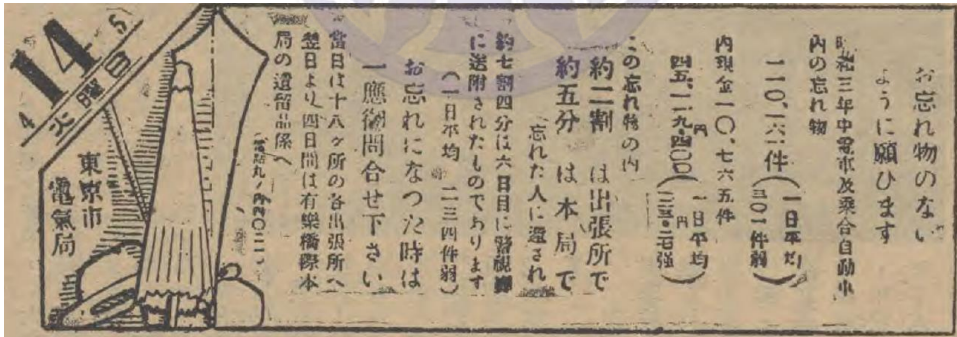 お忘れ物のない
ように願ひます
昭和三年中電車及乗合自動車
内の忘れ物
一一〇、一六二件(一日平均 三〇一件弱)
内現金一〇、七六五件
四五、一一九円・四〇〇(一日平均 一二三円・二七強)
この忘れ物の内
約二割 は出張所で
約五分 は本局で
忘れた人に還され
約七割四分は六日目に警視廳
に送附されたものであります
(一日平均 二二四件弱)
お忘れになつた時は
一應御問合せ下さい
當日は十八ヶ所の各出張所へ
翌日より四日間は有樂橋際本
局の遺留品係へ
電話丸ノ内
5
14
4
火曜日
東京市
電氣局